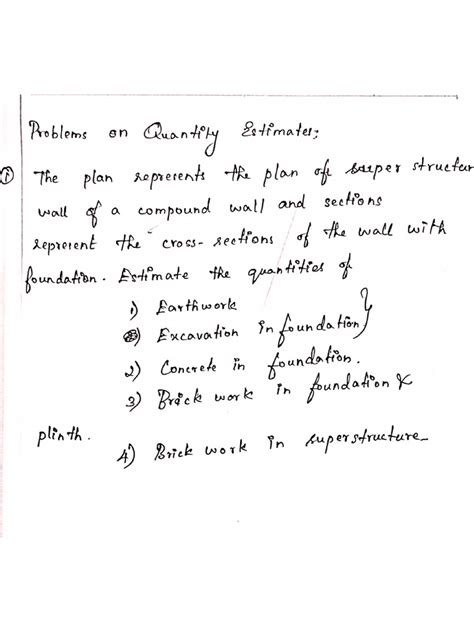 Problems on Quantity Estimates;
① The plan represents the plan of super structur
wall of a compound wall and sections
represent the cross-sections of the wall with
foundation. Estimate the quantities of
1) Earthwork
Excavation in foundation}
2) Concrete in foundation.
3) Brick work in foundation &
plinth.
4) Brick work in superstructure